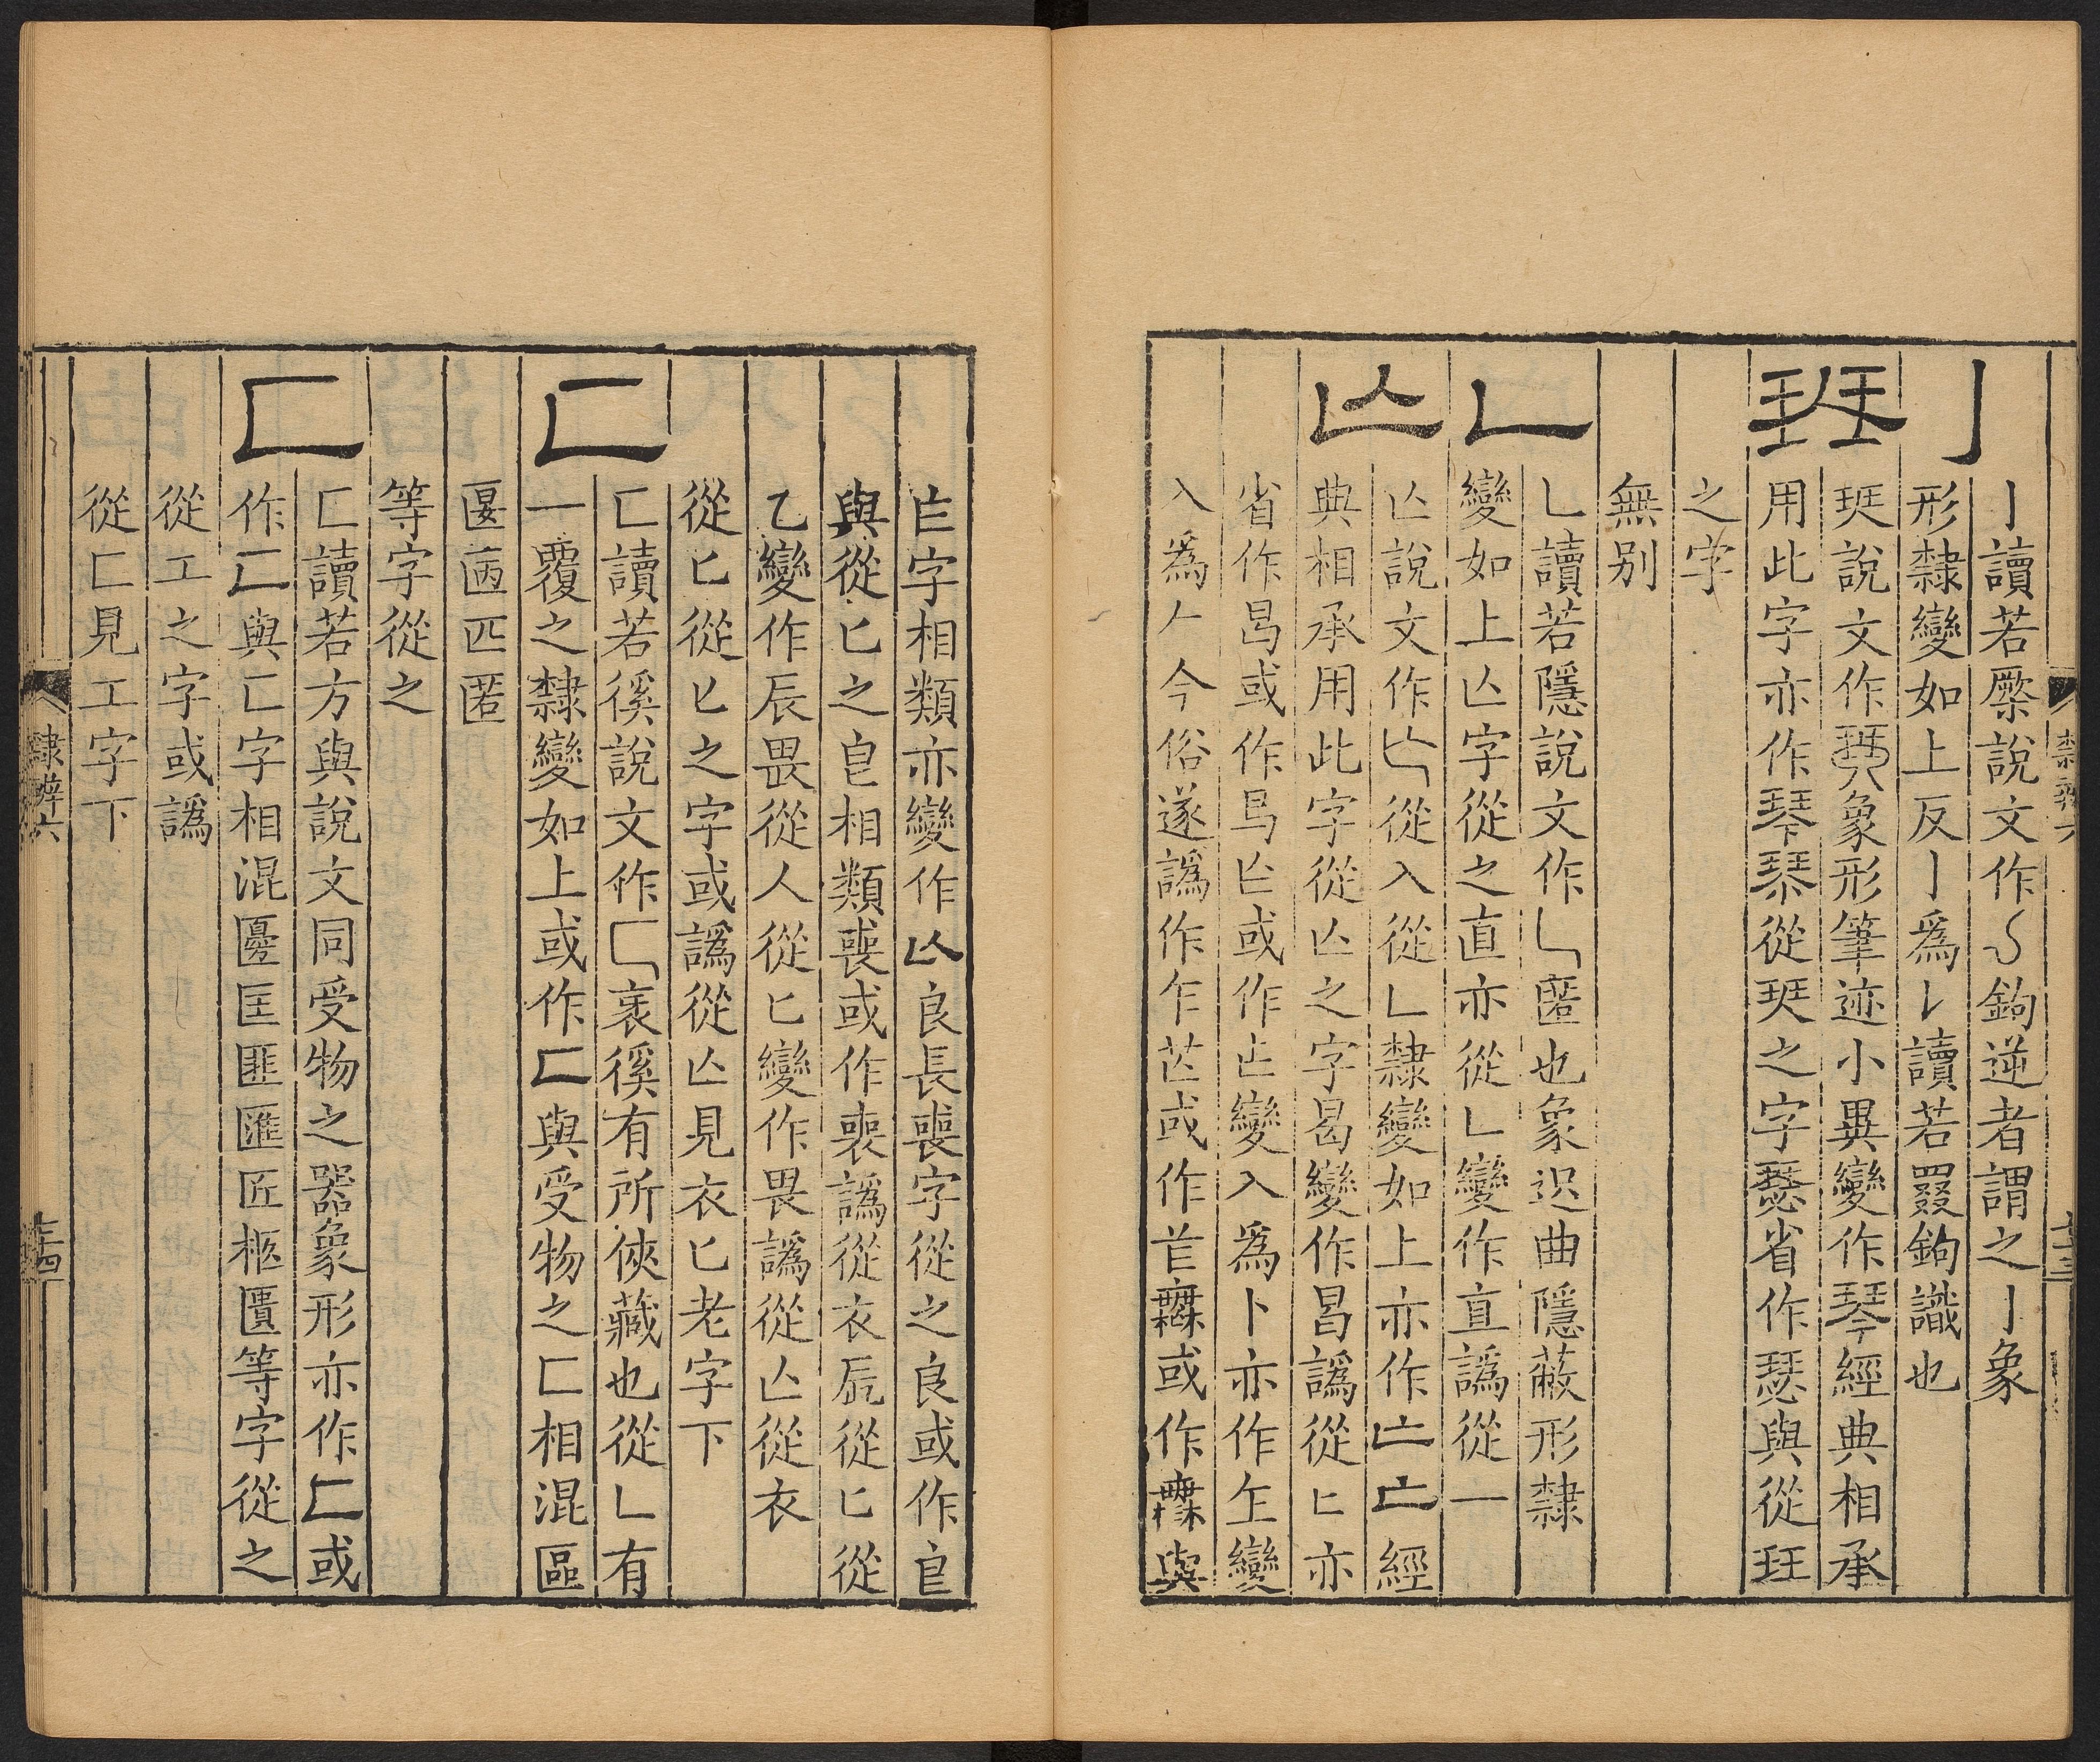 亅
亅讀若橜說文作𠄌鉤逆者謂之亅象
形隸變如上反亅爲𠄌讀若罬鉤識也
珡
珡說文作象形筆迹小異變作琴經典相承
用此字亦作琴𤦡從珡之字瑟省作瑟與從玨
之字
無別
𠃊
𠃊讀若隱說文作𠃊匿也象迟曲隱蔽形隸
變如上亾字從之直亦從𠃊變作直譌從一
亾
亾說文作亾從入從𠃊隸變如上亦作亡亡經
典相承用此字從亾之字曷變作曷譌從匕亦
省作曷或作㠪或作変入爲卜亦作𠤎變
入爲𠂉今俗遂譌作乍芒或作𦬆或作與
𠤎字相類亦變作亾良長喪字從之良或作㠯
與從匕之皀相類喪或作喪譌從衣𠂢從匕從
乙變作辰畏從人從匕變作畏譌從亾從衣
從匕從匕之字或譌從亾見衣匕老字下
匸
匸讀若徯說文作匸衺徯有所俠藏也從𠃊有
一覆之隸變如上或作匚與受物之匚相混區
匽匧匹匿
等字從之
匚
匚讀若方與說文同受物之器象形亦作匚或
作匸與匸字相混匶匡匪匯匠柩匱等字從之
從工之字或譌
從匚見工字下
隸辨六
十三
隸辨六
十四